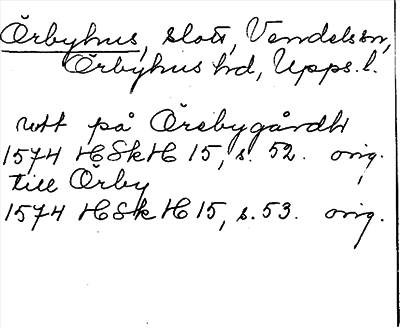 Örbyhus, slott, Vendels sn,
Örbyhus hd, Upps. l.
utt på Örebygårdh
1574 HSkH 15, s. 52. orig.
till Örby
1574 HSkH 15, s. 53. orig.